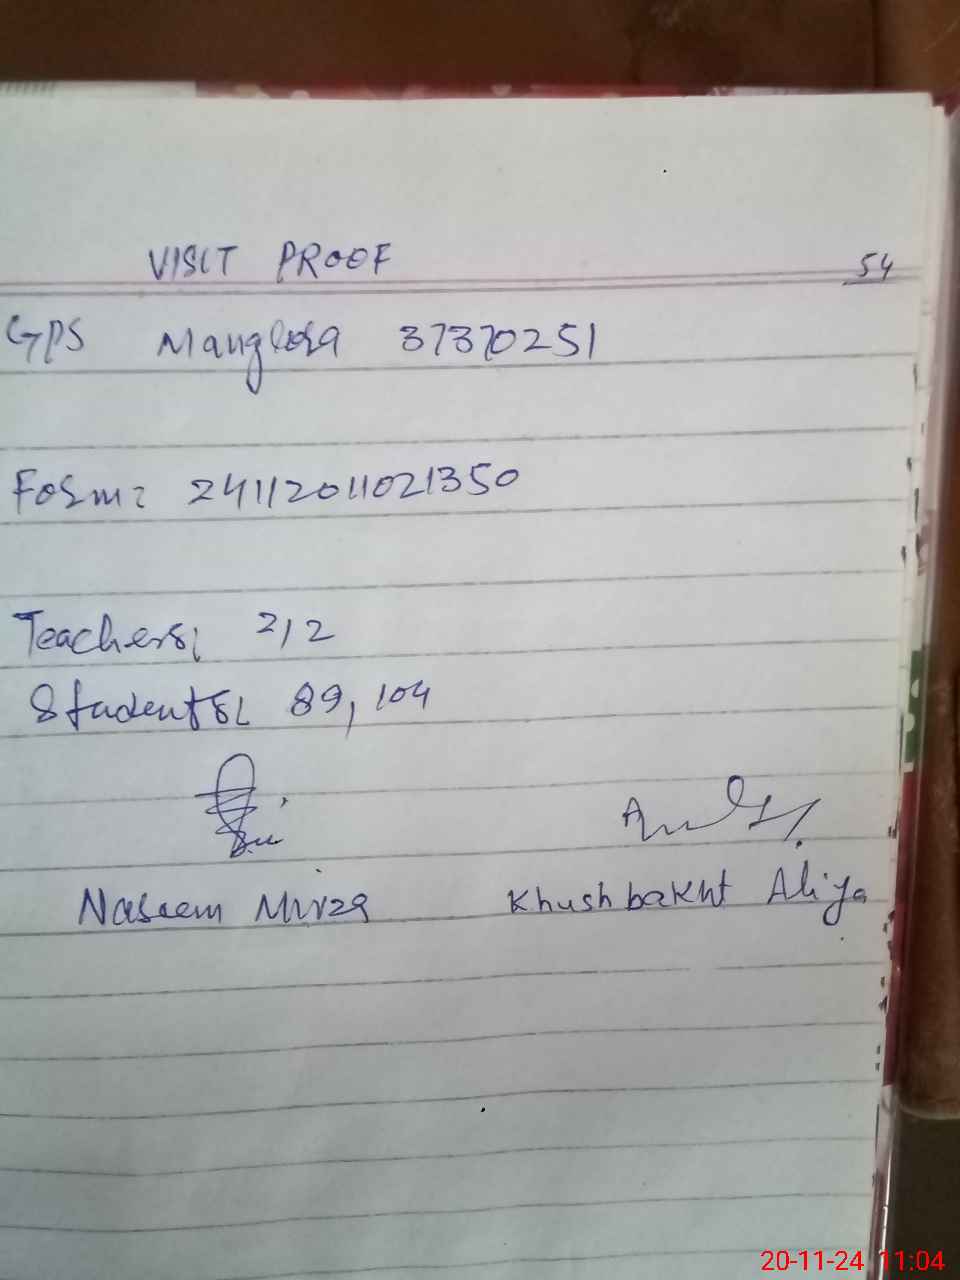 VISIT PROOF
54
GPS Manglora 37370251
Form: 24112011021350
Teachers: 2/2
Students: 89, 104
Naseem Mirza
Khushbakht Aliya
20-11-24 11:04